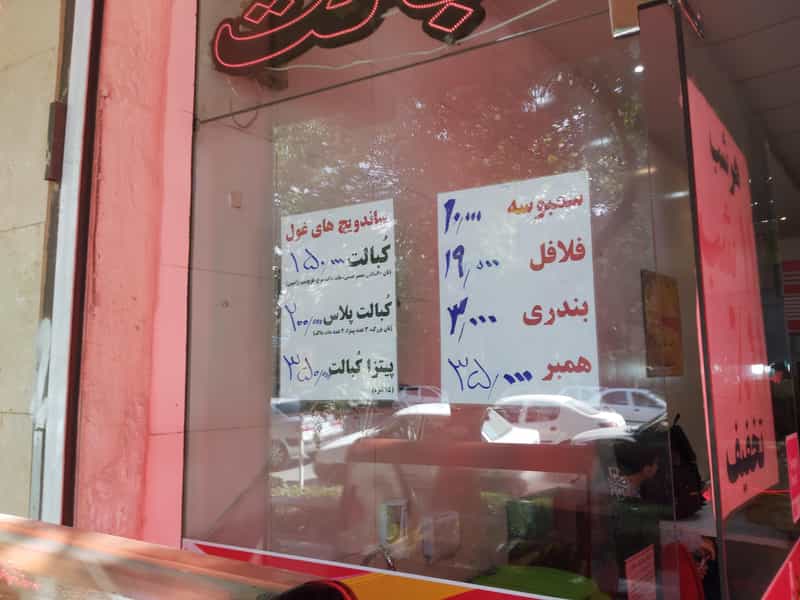 بالت
ساندویچ های غول
کُبالت ۱۵۰/۰۰۰
کُبالت پلاس ۲۰۰/۰۰۰
پیتزا کُبالت ۳۵۰/۰۰۰
سمبوسه ۱۰/۰۰۰
فلافل ۱۹/۰۰۰
بندری ۳۰/۰۰۰
همبر ۳۵/۰۰۰
هر شب
تخفیف